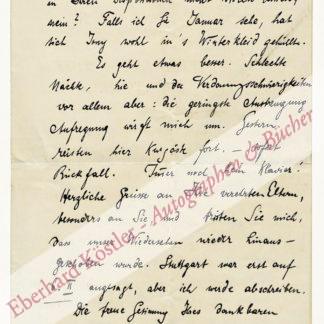 in Ihren Dispositionen
mein? Falls ich Sie Januar sehe, hat
sich Isny wohl in's Winterkleid gehüllt.
Es geht etwas besser. Schlechte
Nächte, hie und da Verdauungsschwierigkeiten
vor allem aber: die geringste Anstrengung
Aufregung wirft mich um. Gestern
reisten hier fort. – sofort
Rückfall. Immer noch kein Klavier!
Herzliche Grüsse an Ihre verehrten Eltern,
besonders an Sie, und trösten Sie mich,
dass unser Wiedersehen wieder hinaus-
geschoben wurde. Stuttgart war erst auf
II angesagt, aber ich werde abschreiben.
Die treue Gesinnung Ihres dankbaren
Eberhard Köstler - Autographen & Bücher